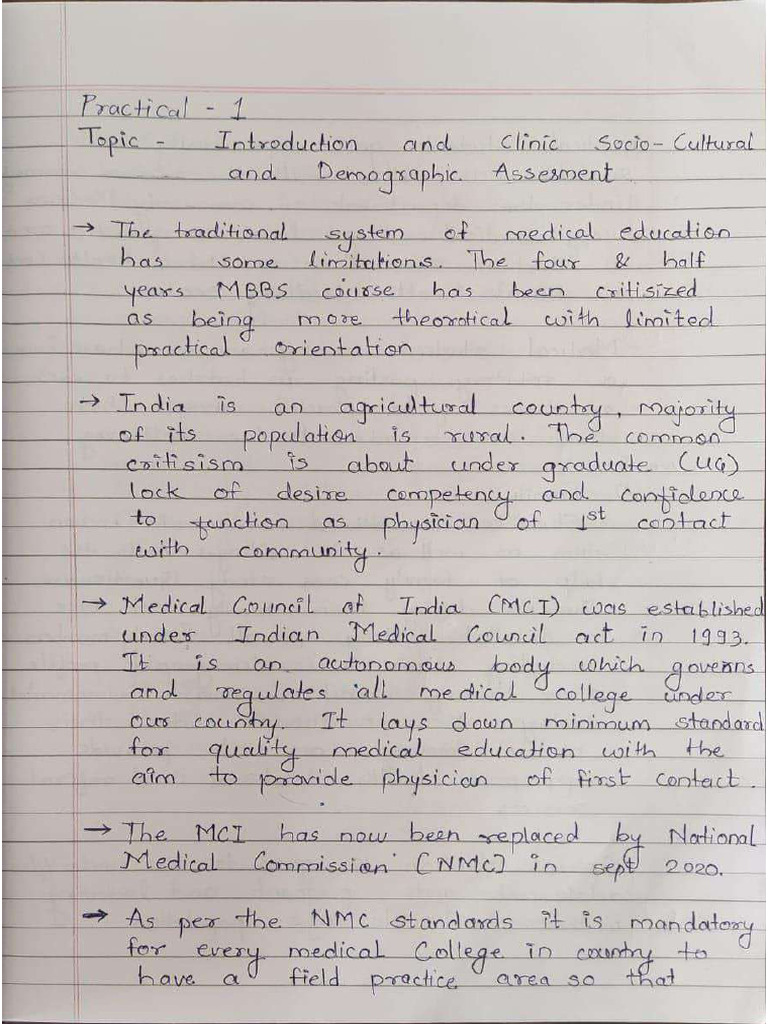 Practical - 1
Topic - Introduction and Clinic Socio-Cultural
and Demographic Assesment
→ The traditional system of medical education
has some limitations. The four & half
years MBBS course has been critisized
as being more theorotical with limited
practical orientation
→ India is an agricultural country, majority
of its population is rural. The common
critisism is about under graduate (UG)
lock of desire competency and confidence
to function as physician of 1st contact
with community.
→ Medical Council of India (MCI) was established
under Indian Medical Council act in 1993.
It is an autonomous body which governs
and regulates all medical college under
our country. It lays down minimum standard
for quality medical education with the
aim to provide physician of first contact.
→ The MCI has now been replaced by National
Medical Commission (NMC) in sept 2020.
→ As per the NMC standards it is mandatory
for every medical College in country to
have a field practice area so that